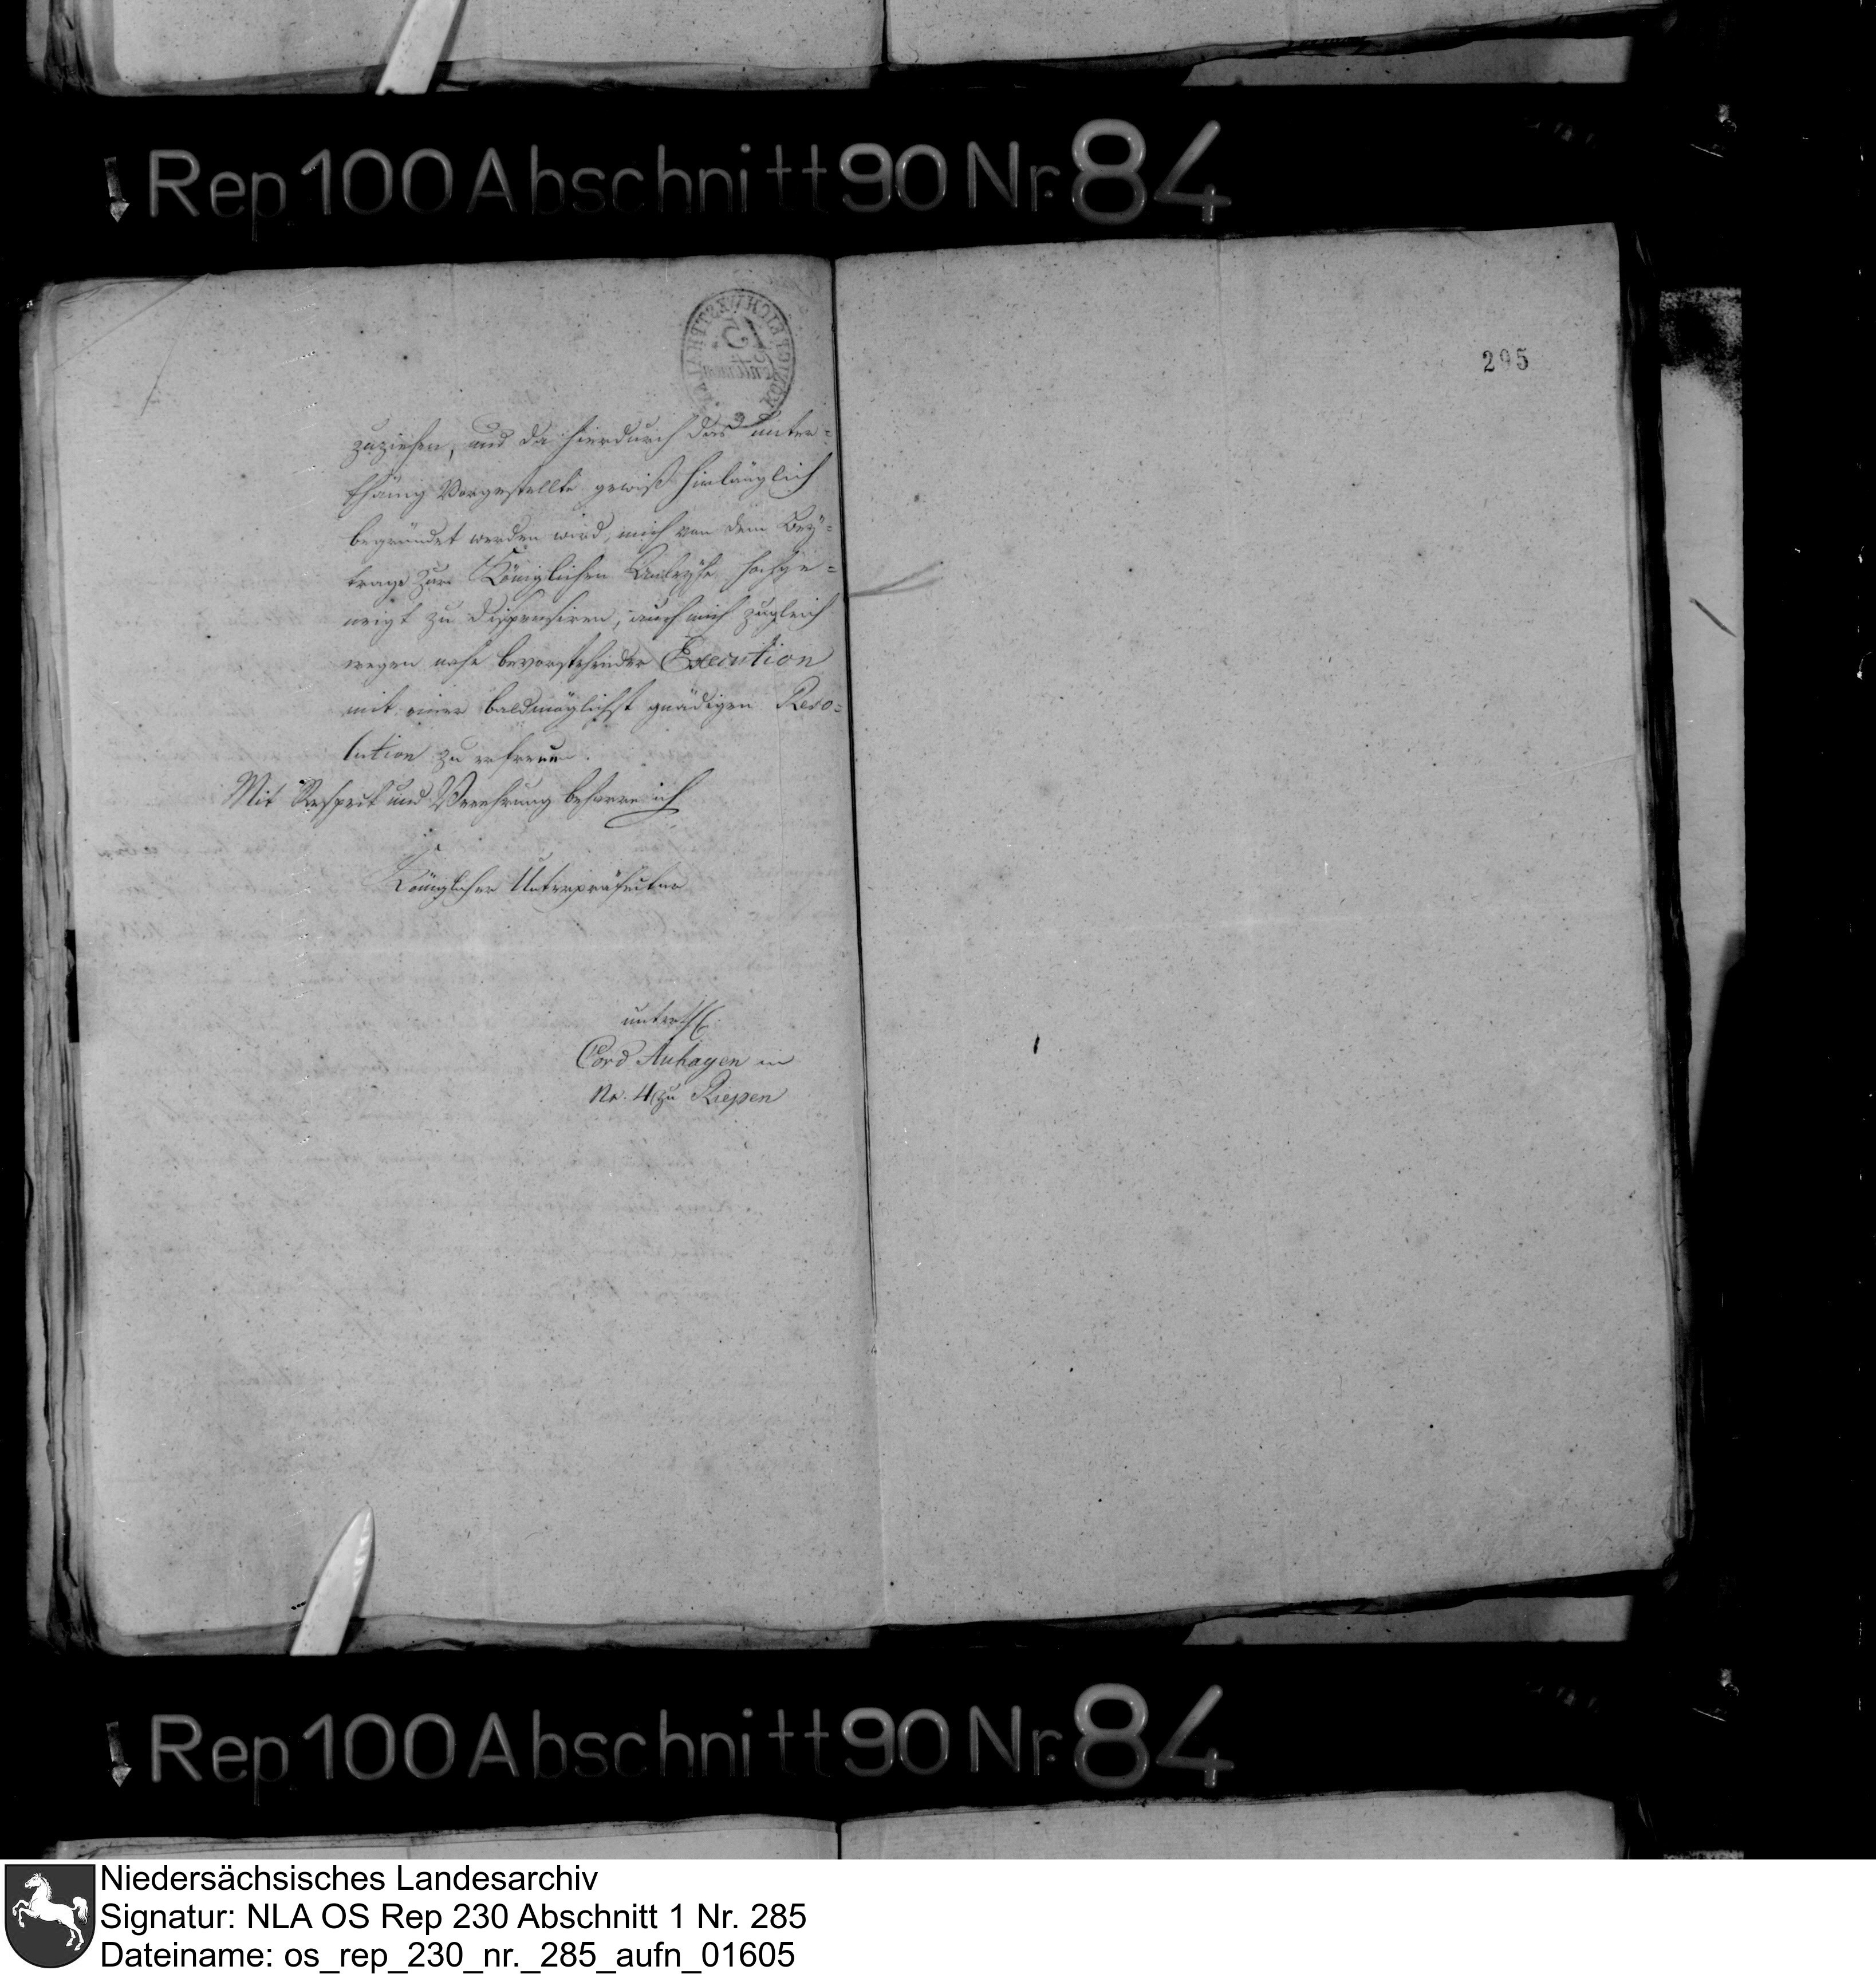 Rep 100 Abschnitt 90 Nr. 84
295
15
zuziehen, und da hierdurch das unter-
thänig Vorgestellte gewiß hinlänglich
begründet werden wird, mich von dem Bey-
trage zur Königlichen Anleyhe hochge-
neigt zu dispensiren, auch mich zugleich
wegen nahe bevorstehender Execution
mit einer baldmöglichst gnädigen Reso-
lution zu erfreuen.
Mit Respect und Verehrung beharre ich
Königlicher Unterpräfectur
unterth.
Cord Auhagen
Nr. 4 zu Riepen
Rep 100 Abschnitt 90 Nr. 84
Niedersächsisches Landesarchiv
Signatur: NLA OS Rep 230 Abschnitt 1 Nr. 285
Dateiname: os_rep_230_nr._285_aufn_01605